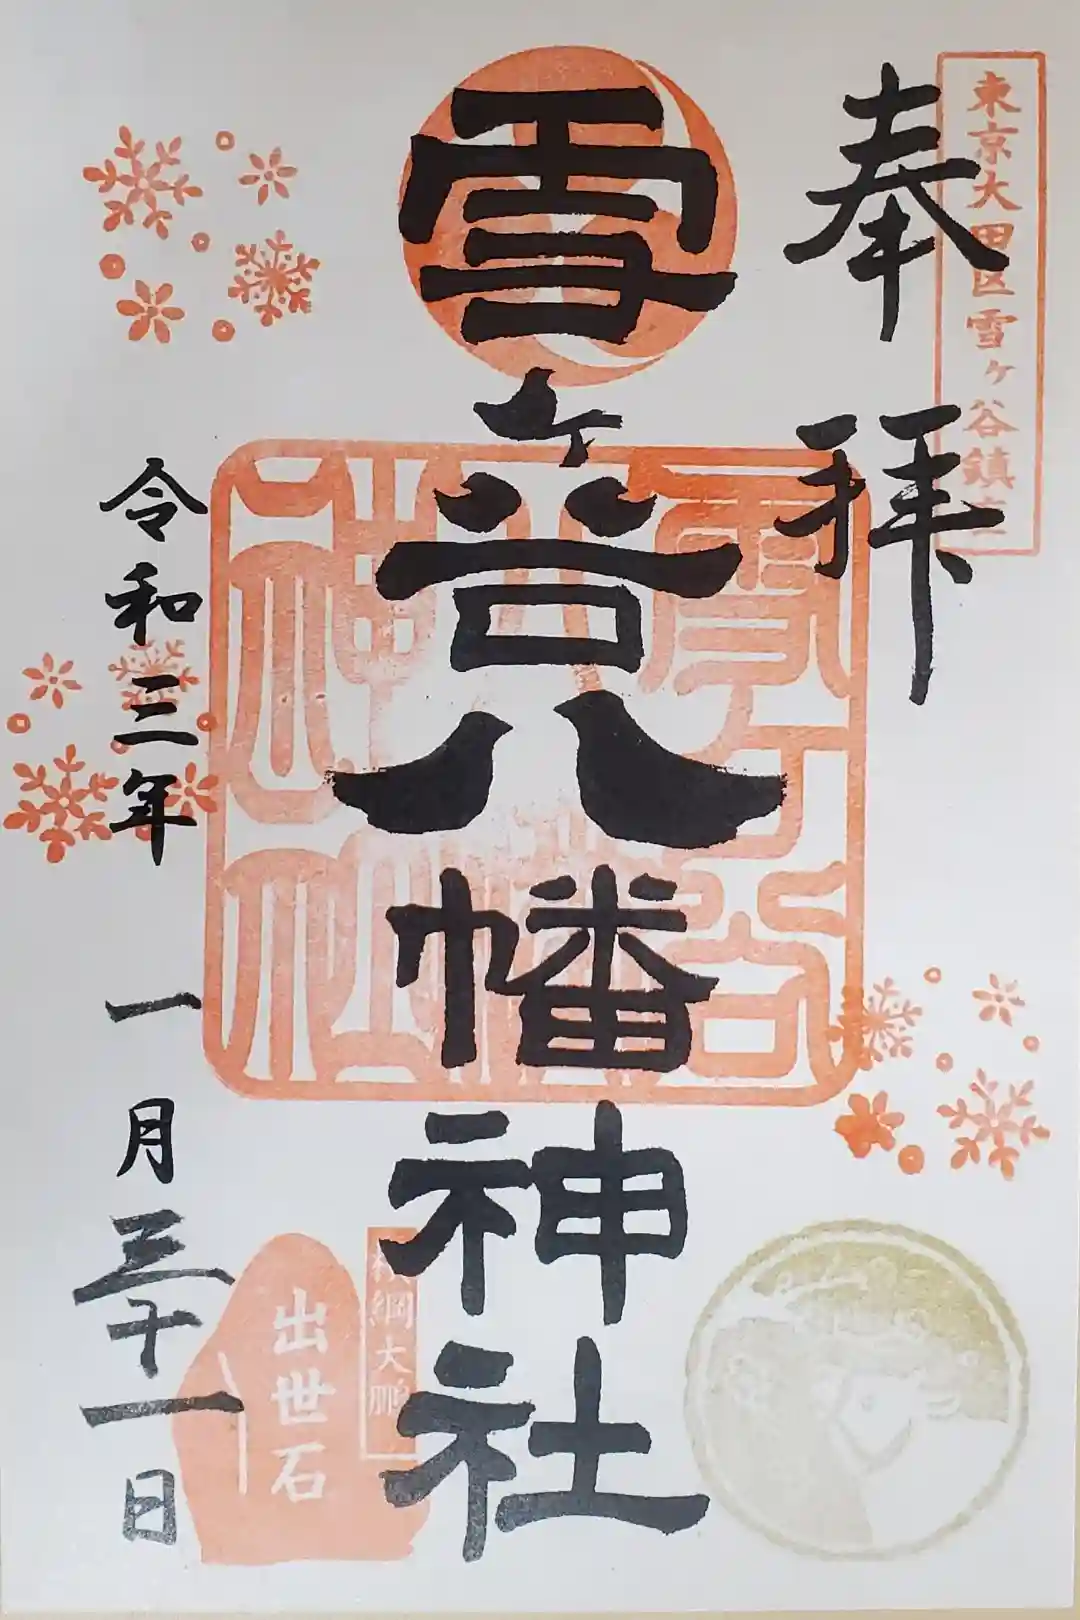 東京大田区雪ヶ谷鎮座
奉拝
雪ヶ谷八幡神社
雪ヶ谷
八幡
神社
横綱大鵬
出世石
令和三年 一月三十一日